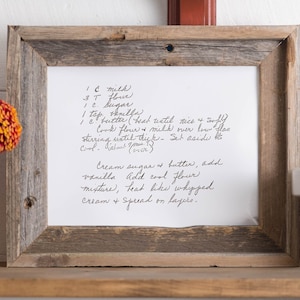 1 C milk
3 T flour
1 C sugar
1 tsp vanilla
1 C butter (beat until nice & soft)
Cook flour & milk over low
stirring until thick. Set aside to
cool.
Cream sugar & butter, add
vanilla Add cool flour
mixture, beat like whipped
cream & spread on layers.